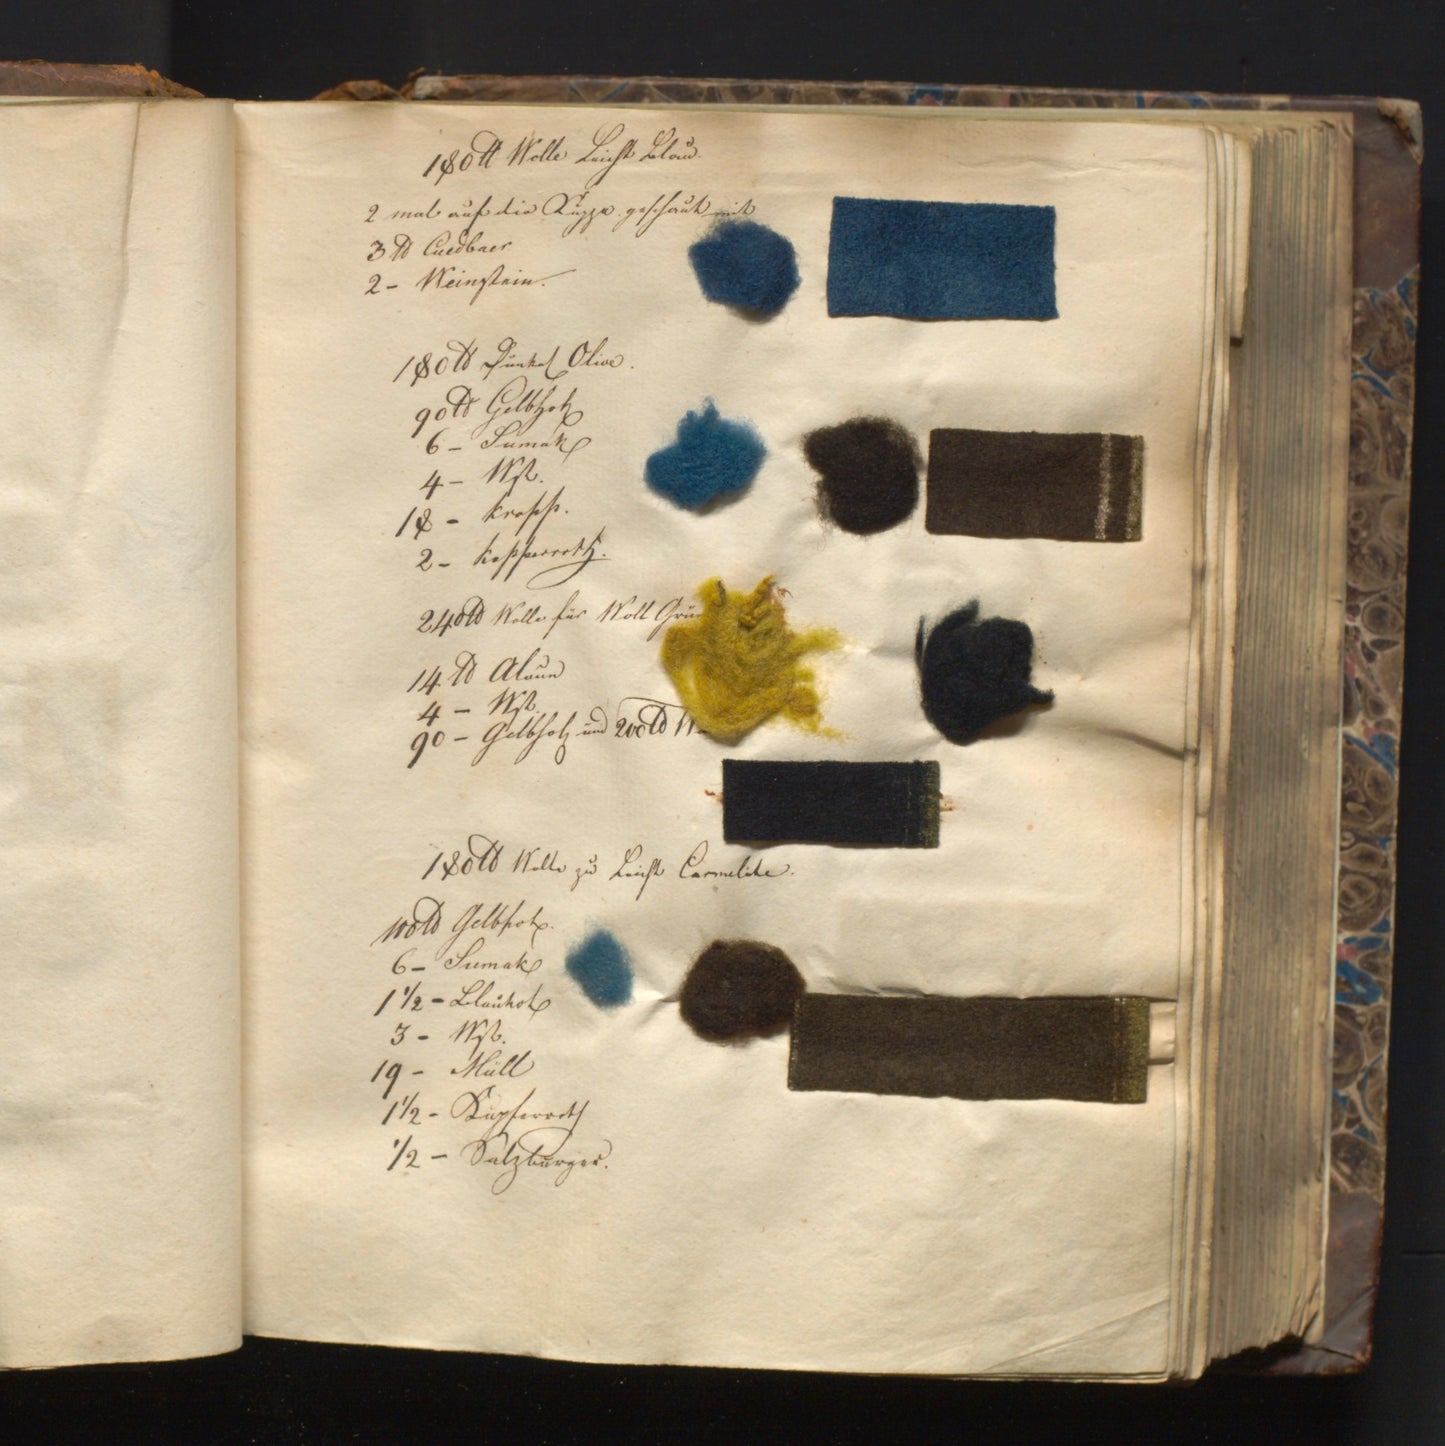 180 ℔ Wolle Leicht Blau.
2 mal auf die Küppe. geschaut mit
3 ℔ Cuedbaer
2 - Weinstein.
180 ℔ Dunkel Olive.
90 ℔ Gelbholz
6 - Sumak
4 - Wst.
18 - Krapp.
2 - Kopperroth.
240 ℔ Wolle für Woll Grün
14 ℔ Alaun
4 - Wst.
90 - Gelbholz und 200 ℔ W
180 ℔ Wolle zu Leicht Carmelite.
100 ℔ Gelbholz.
6 - Sumak
1 1/2 - Blauholz
3 - Wst.
19 - Müll
1 1/2 - Kupferroth
1/2 - Salzburger.